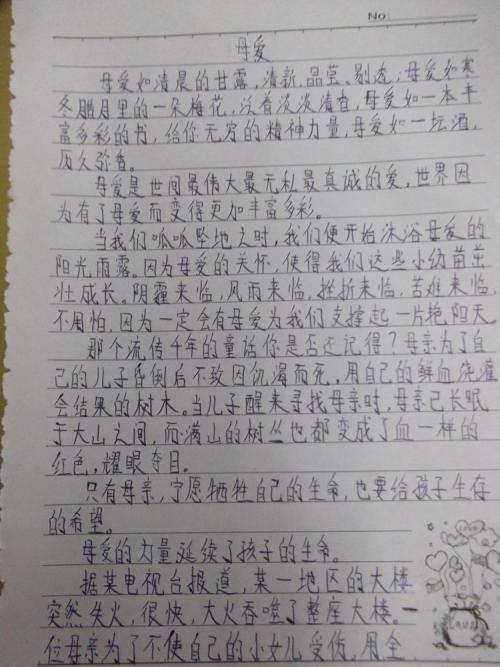 No:
母爱
母爱如清晨的甘露，清新、晶莹、剔透；母爱如寒
冬腊月里的一朵梅花，沁着淡淡清香，母爱如一本丰
富多彩的书，给你无穷的精神力量，母爱如一坛酒，
历久弥香。
母爱是世间最伟大最无私最真诚的爱，世界因
为有了母爱而变得更加丰富多彩。
当我们呱呱坠地之时，我们便开始沐浴母爱的
阳光雨露。因为母爱的关怀，使得我们这些小幼苗茁
壮成长。阴霾来临，风雨来临，挫折来临，苦难来临，
不用怕，因为一定会有母爱为我们支撑起一片艳阳天。
那个流传千年的童话你是否还记得？母亲为了自
己的儿子昏倒后不致因饥渴而死，用自己的鲜血浇灌
会结果的树木。当儿子醒来寻找母亲时，母亲已长眠
于大山之间，而满山的树丛也都变成了血一样的
红色，耀眼夺目。
只有母亲，宁愿牺牲自己的生命，也要给孩子生存
的希望。
母爱的力量延续了孩子的生命。
据某电视台报道，某一地区的大楼
突然失火，很快，大火吞噬了整座大楼。一
位母亲为了不使自己的小女儿受伤，用全